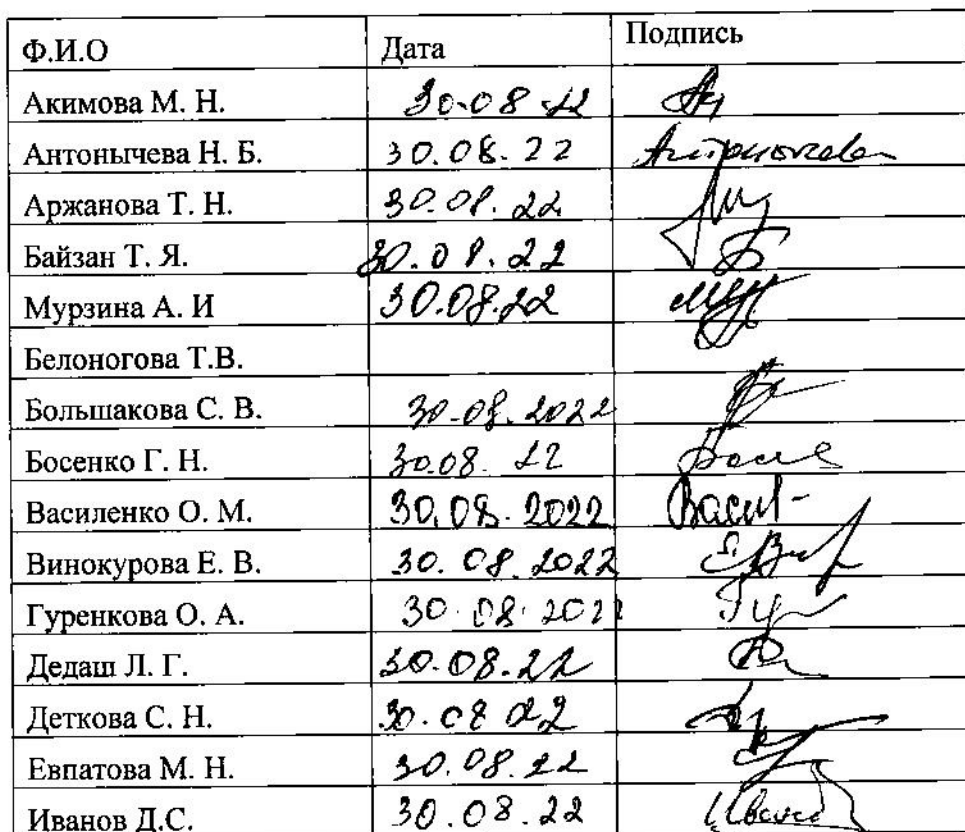 Ф.И.О Дата Подпись
Акимова М. Н. 30.08.22
Антонычева Н. Б. 30.08.22
Аржанова Т. Н. 30.08.22
Байзан Т. Я. 30.08.22
Мурзина А. И 30.08.22
Белоногова Т.В.
Большакова С. В. 30.08.2022
Босенко Г. Н. 30.08.22
Василенко О. М. 30.08.2022 Васил-
Винокурова Е. В. 30.08.2022
Гуренкова О. А. 30.08.2022
Дедаш Л. Г. 30.08.22
Деткова С. Н. 30.08.22
Евпатова М. Н. 30.08.22
Иванов Д.С. 30.08.22